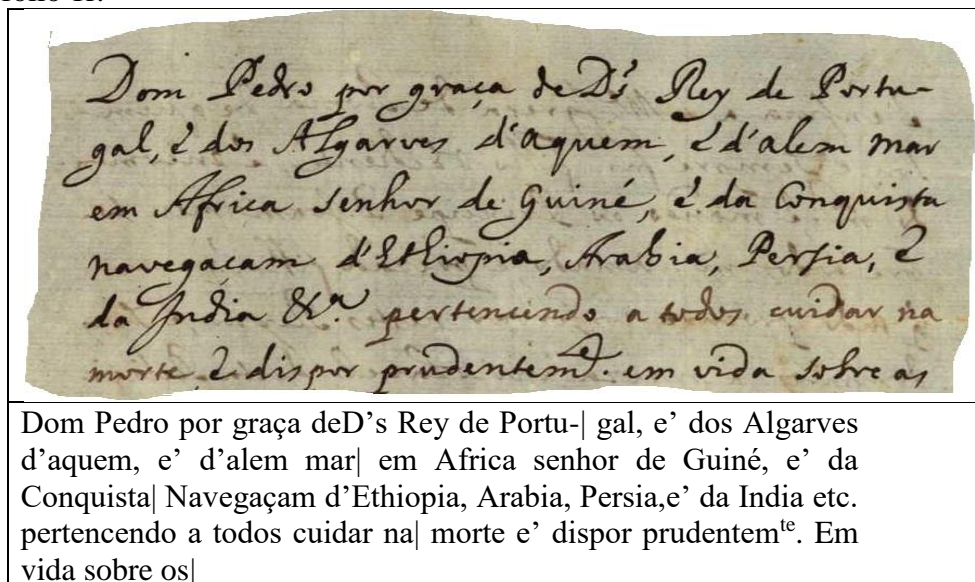 Dom Pedro por graça de D.s Rey de Portu-
gal, é dos Algarves d'aquem, é d'alem mar
em Africa senhor de Guiné, é da Conquista
navegaçam d'Ethiopia, Arabia, Persia, é
da India &.ª pertencendo a todos cuidar na
morte, é dispor prudentem.e em vida sobre as
Dom Pedro por graça deD’s Rey de Portu-| gal, e’ dos Algarves
d’aquem, e’ d’alem mar| em Africa senhor de Guiné, e’ da
Conquista| Navegaçam d’Ethiopia, Arabia, Persia,e’ da India etc.
pertencendo a todos cuidar na| morte e’ dispor prudentemte. Em
vida sobre os|